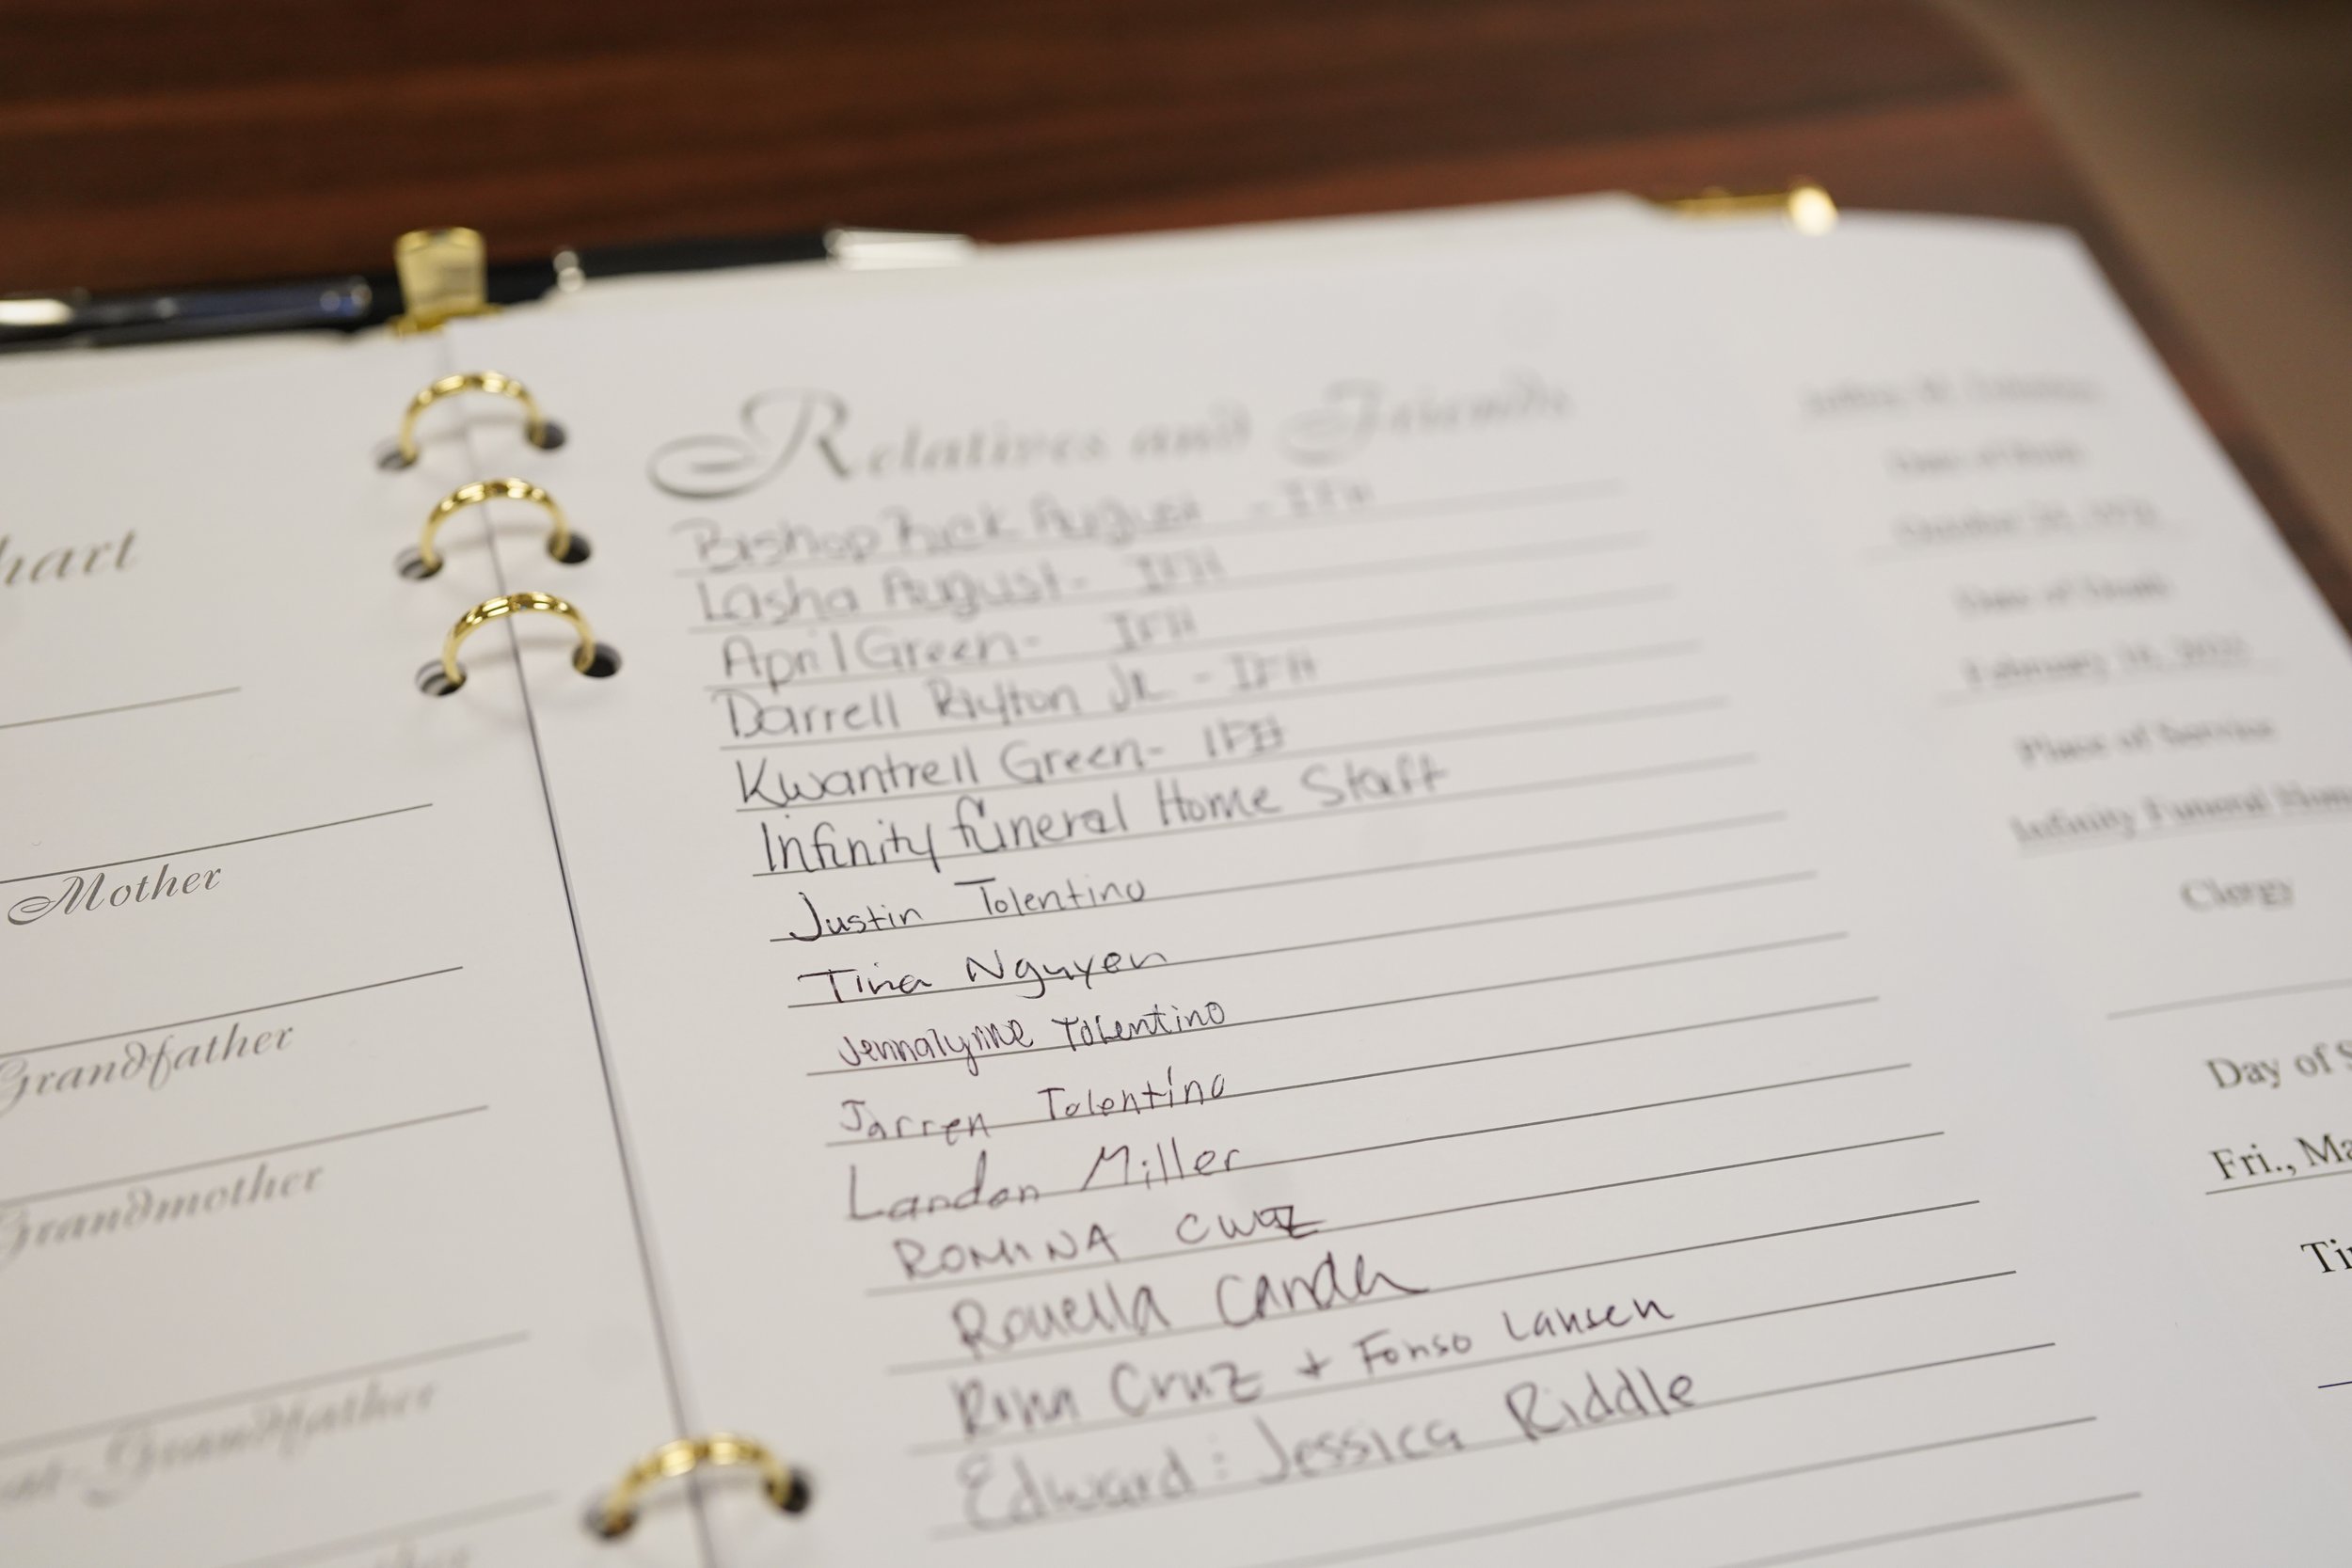 hart
Mother
Grandfather
Grandmother
Grandfather
Relatives and Friends
Bishop Rick August - IFH
Lasha August - IFH
April Green - IFH
Darrell Jr. - IFH
Kwantrell Green - IFH
Infinity funeral Home Staff
Justin Tolentino
Tina Nguyen
Jennalynne Tolentino
Jarren Tolentino
Landon Miller
ROMINA Cruz
Rouella Canda
Cruz + Fonso Lansen
Edward : Jessica Riddle
Date of Birth
Date of Death
February
Place of Service
Infinity Funeral Hom
Clergy
Day of S
Fri., Ma
Ti